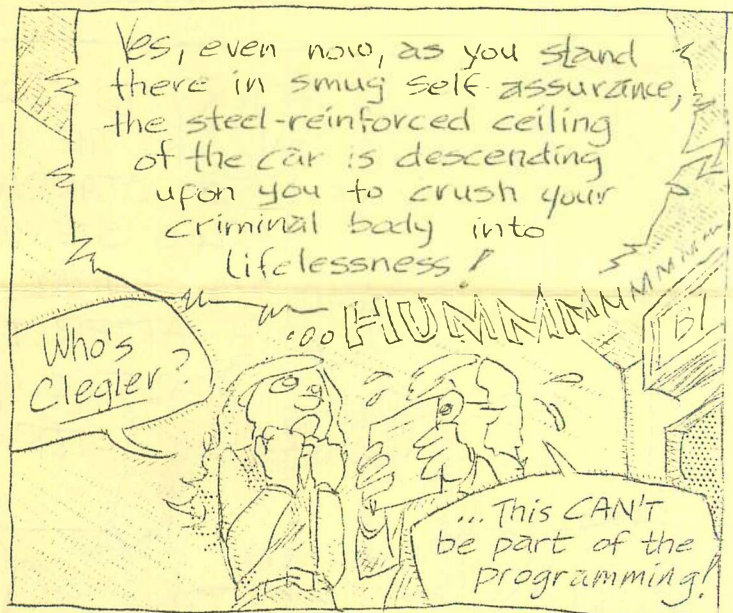 Yes, even now, as you stand
there in smug self-assurance,
the steel-reinforced ceiling
of the car is descending
upon you to crush your
criminal body into
lifelessness!
...HUMMMMMMMMM
Who's
Clegler?
B1
...This CAN'T
be part of the
programming!